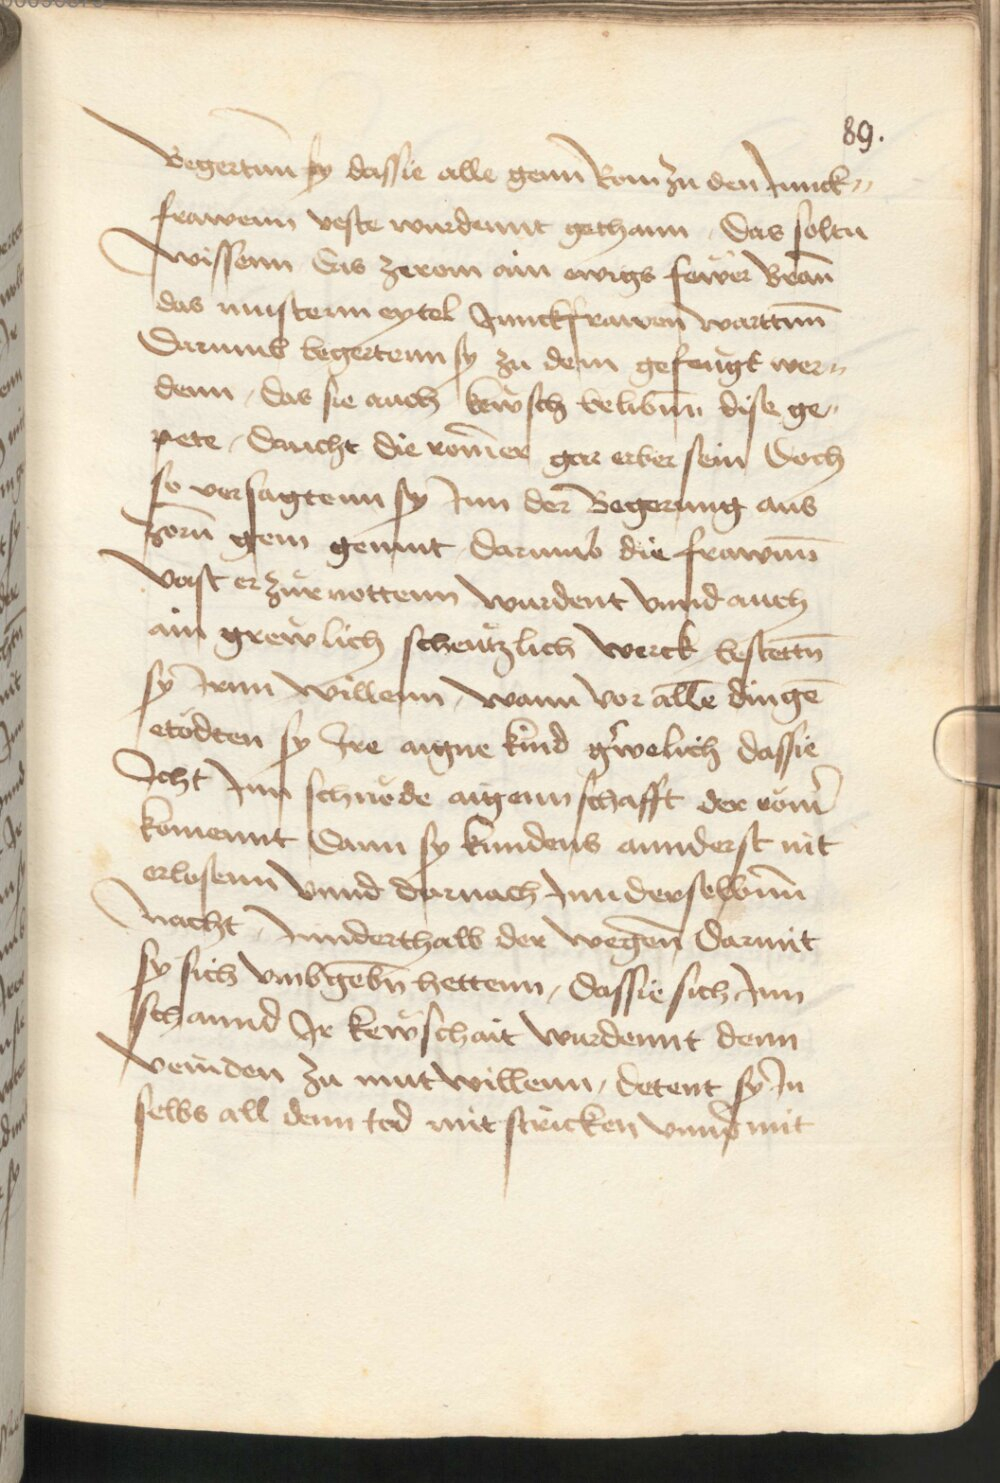 89.
Begertenn sy dassie alle genn Rom zu den Junck„
frawenn veste wurdennt gethann / Das soltu
wissenn das zerom ain ewigs fewer Bran̄
das mustenn eytel Junckfrawen̄ warttnn̄
Darumb begertenn sy zu dem gefeugt wer„
denn / das sie auch kewsch belibnn dise ge„
pete / daucht die rom̄er gar erber sein Doch
so versagtenn sy Inn der Begerung aus
zorn̄ gem gemut darumb die frawnn̄
vast erzürnottenn wurdent vnnd auch
ain grewlich scheutzlich werck bestettn̄
sy Irnn willenn / wann vor alle dingē
etödten sy Ire aigne kind grwelich dassie
Icht Inn schnöde aigennschafft der röm̄
koment Dann sy kundens annderst nit
erlosenn vnnd darnach Inn derselbnn̄
nacht / Innderthalb der wegen̄ / darmit
sy sich vmbgebn̄ hettenn / dassie sich Inn
schannd Ir kewschait wurdennt denn
veinden zu mutwillenn / detent sy In
selbs all denn tod mit stricken vnnd mit